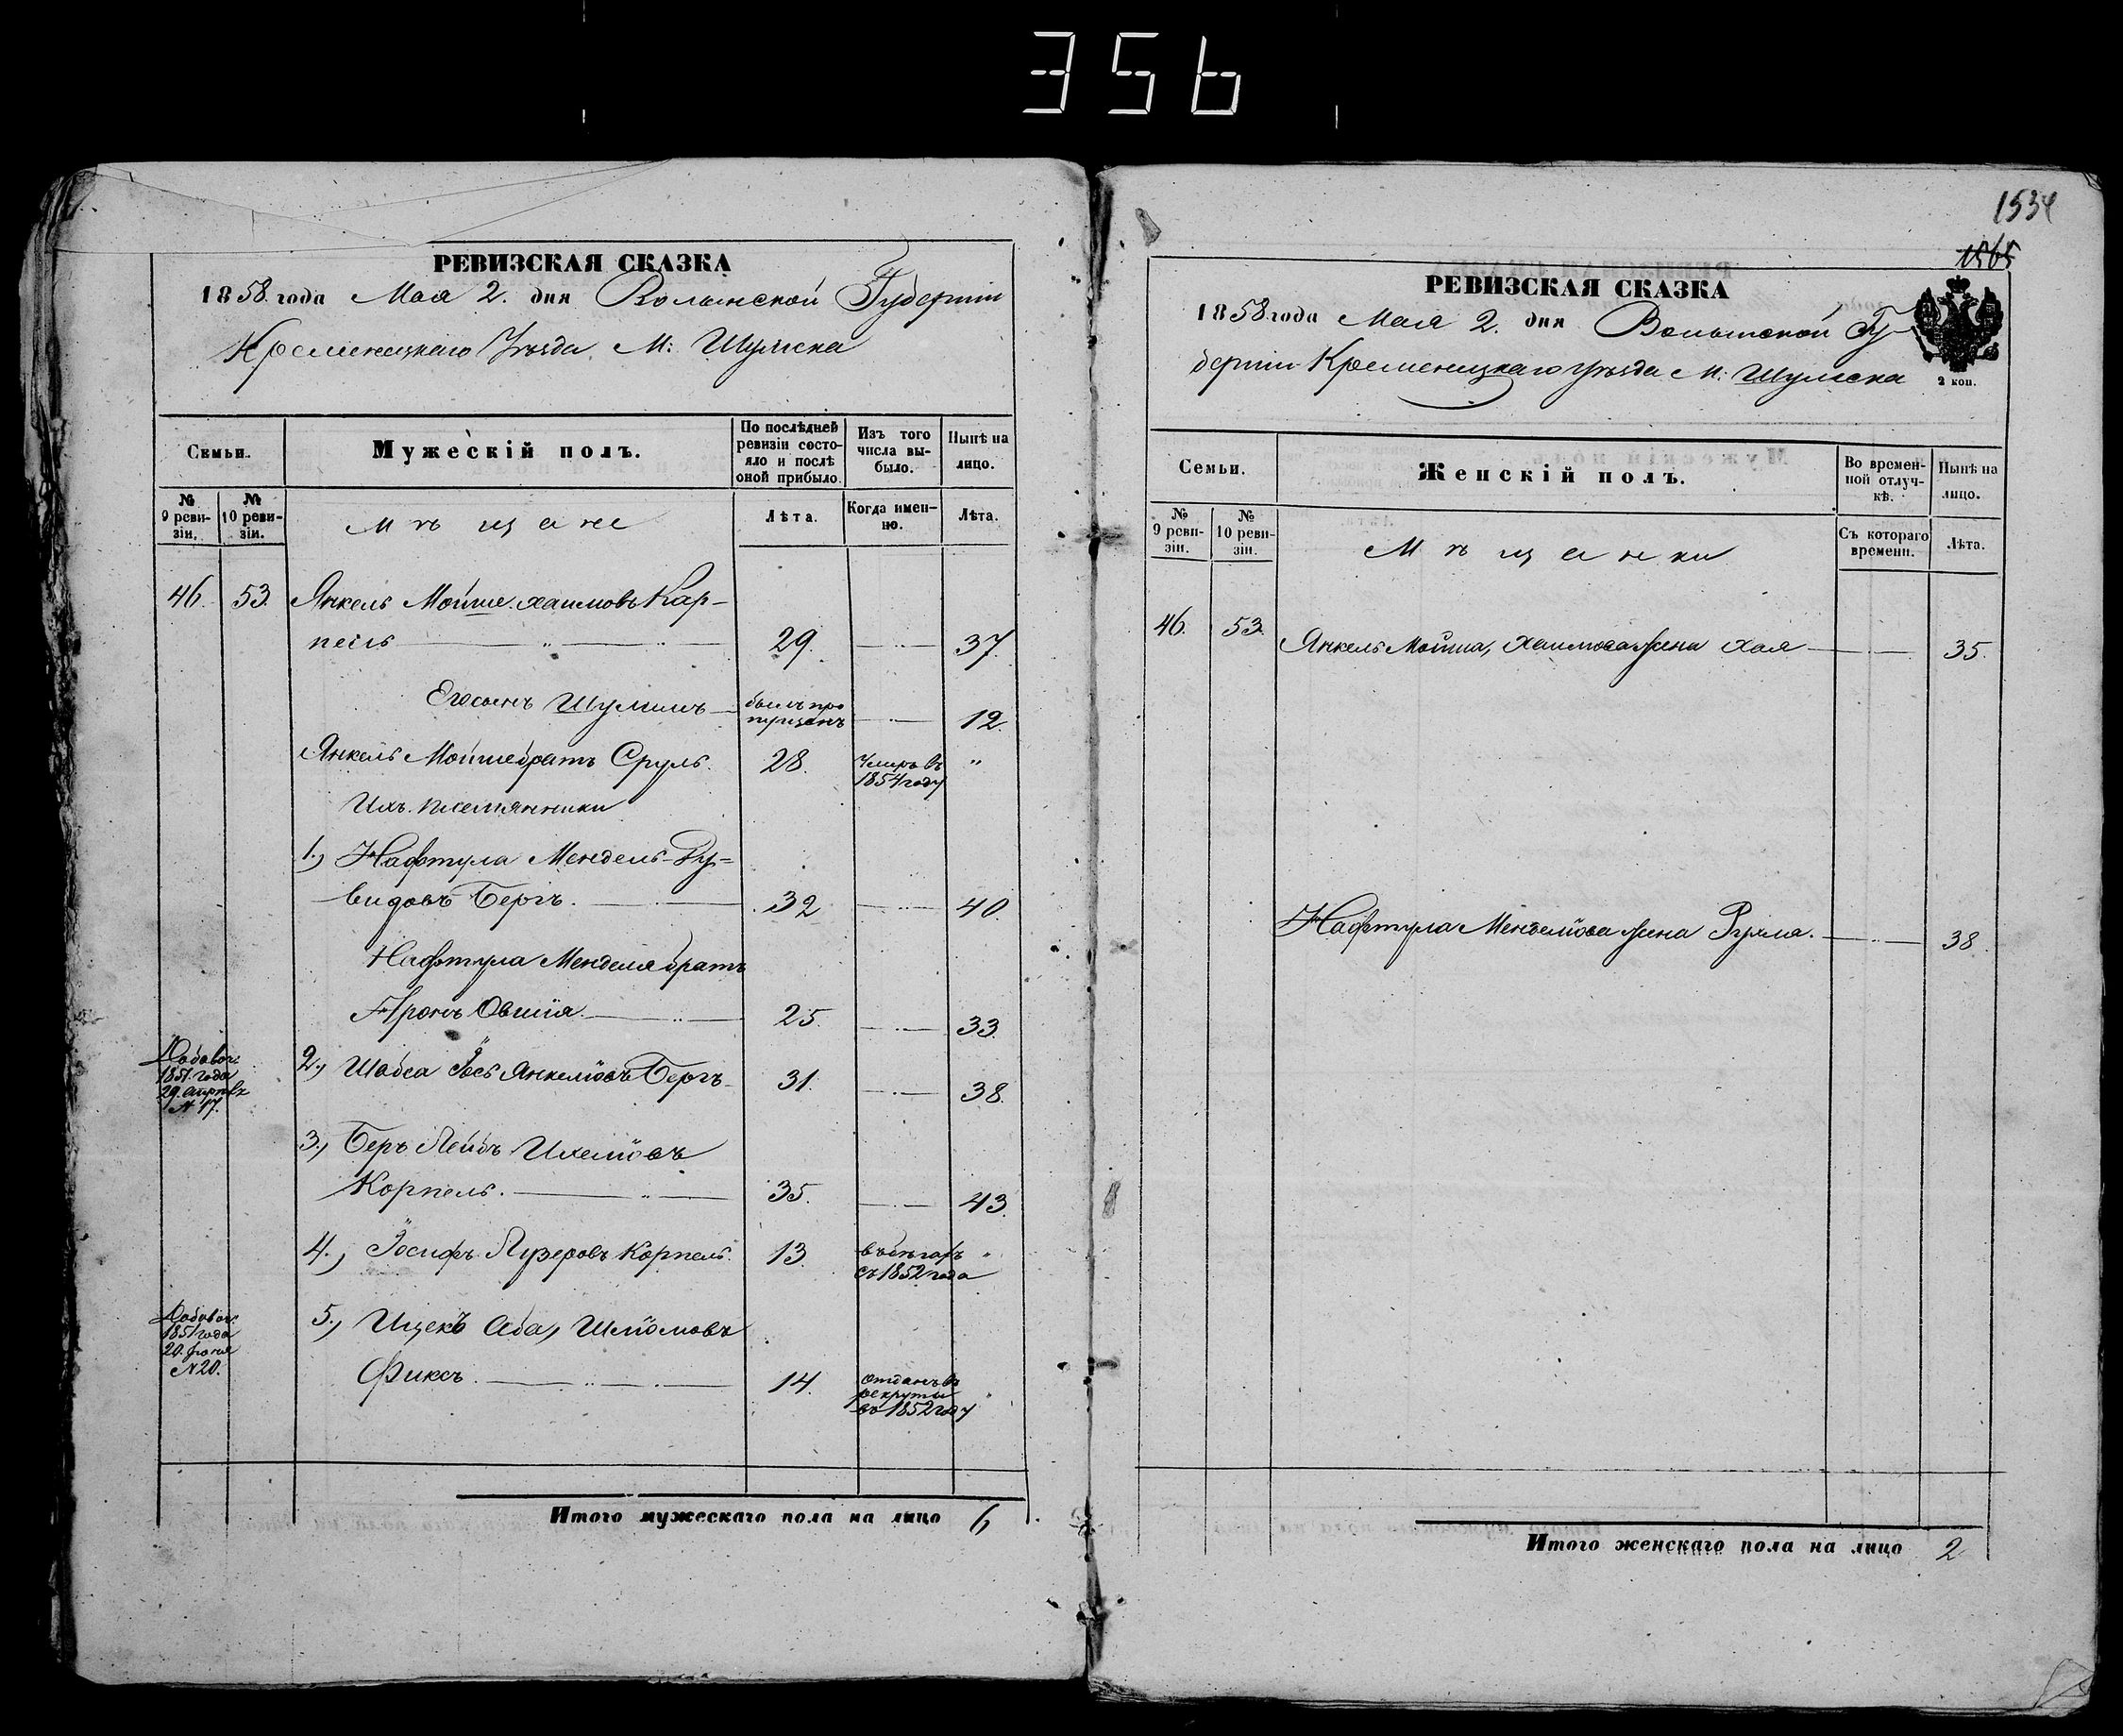 356
РЕВИЗСКАЯ СКАЗКА
1858 года Мая 2. дня Волынской Губерніи
Кременецкаго Уѣзда М: Шумска
Семьи.
Мужескій полъ.
По послѣдней ревизіи состояло и послѣ оной прибыло.
Изъ того числа выбыло.
Нынѣ на лицо.
№ 9 ревизіи.
№ 10 ревизіи.
Мѣщане
Лѣта.
Когда именно.
Лѣта.
46. 53. Янкель Мойше Хаимовъ Кар-
пель 29. 37.
Его сынъ Шулимъ былъ пропущенъ 12.
Янкель Мойше братъ Сруль. 28. Умеръ въ 1854 году "
Ихъ племянники
1., Нафтула Мендель-Ру-
видовъ Бергъ. 32 40.
Нафтула Менделя братъ
Аронъ Овшія 25. 33.
Добавоч. 1851. года 29. № 17.
2., Шабса Іось Янкеліовъ Бергъ 31. 38.
3., Беръ Лейбъ Ихеліовъ
Корпель. 35. 43.
4., Іосифъ Лузеровъ Корпель. 13. въ бѣгахъ съ 1852 года "
Добавоч. 1851 года 20. № 20.
5., Ицекъ Аба, Шліомовъ
Фиксъ. 14. отданъ въ рекруты въ 1852 году "
Итого мужескаго пола на лицо 6
1534
1565
РЕВИЗСКАЯ СКАЗКА
1858 года Мая 2. дня Волынской Гу-
берніи Кременецкаго Уѣзда М: Шумска
2 коп.
Семьи.
Женскій полъ.
Во временной отлучкѣ.
Нынѣ на лицо.
№ 9 ревизіи.
№ 10 ревизіи.
Мѣщанки
Съ котораго времени.
Лѣта.
46. 53. Янкель Мойша, Хаимова жена Хая 35.
Нафтула Менделіова жена Рухла. 38.
Итого женскаго пола на лицо 2